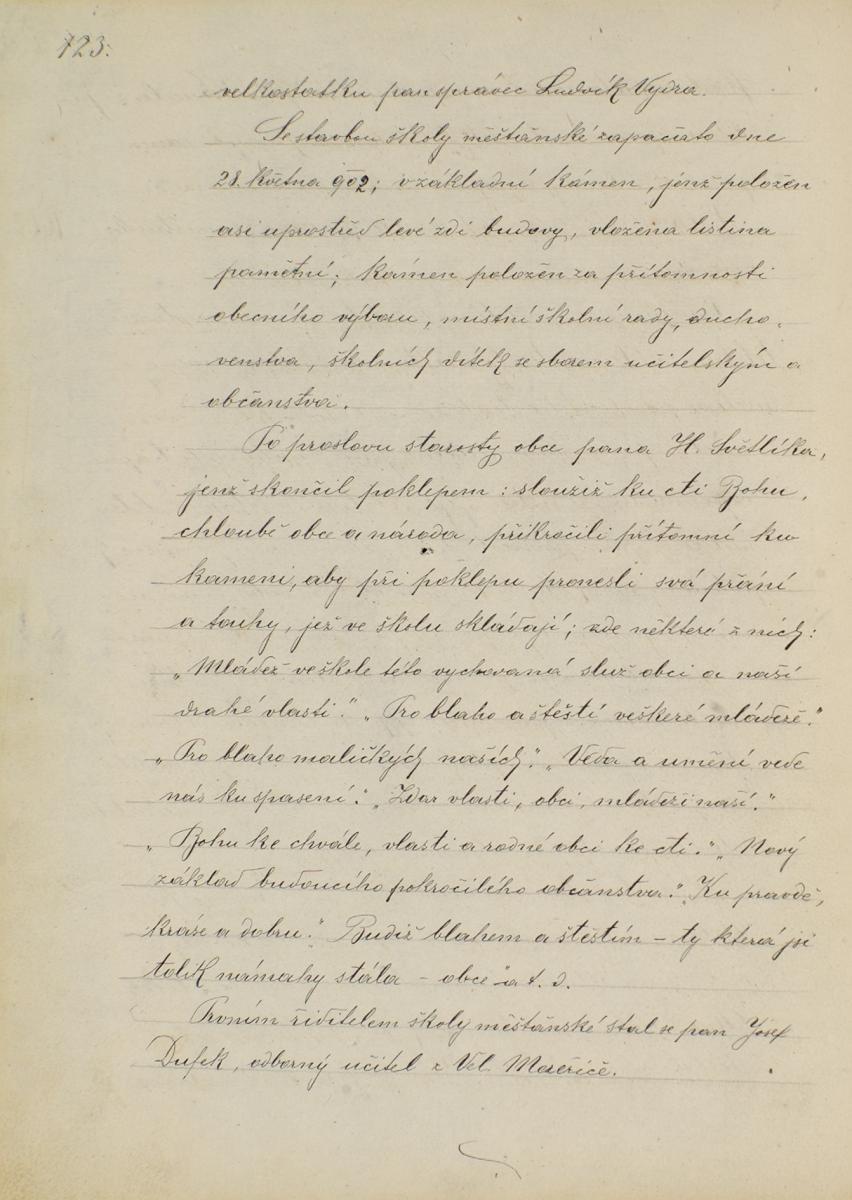 123.
velkostatku pan správec Ludvík Vydra.
Se stavbou školy měšťanské započato dne
28. května 902; v základní kámen, jenž položen
asi uprostřed levé zdi budovy, vložena listina
pamětní; kámen položen za přítomnosti
obecního výboru, místní školní rady, ducho-
venstva, školních dítek se sborem učitelským a
občanstva.
Po proslovu starosty obce pana H. Světlíka,
jenž skončil poklepem: služiž ku cti Bohu,
chloubě obce a národa, přikročili přítomní ku
kameni, aby při poklepu pronesli svá přání
a touhy, jež ve školu skládají; zde některé z nich:
„Mládež ve škole této vychovaná služ obci a naší
drahé vlasti." „Pro blaho a štěstí veškeré mládeže."
„Pro blaho maličkých našich." „Věda a umění vede
nás ku spasení." „Zdar vlasti, obci, mládeži naší."
„Bohu ke chvále, vlasti a rodné obci ke cti." „Nový
základ budoucího pokročilého občanstva." „Ku pravdě,
kráse a dobru." Budiž blahem a štěstím – ty která jsi
tolik námahy stála – obce" a t. d.
Prvním řiditelem školy měšťanské stal se pan Josef
Dufek, odborný učitel z Vel. Meziříčí.